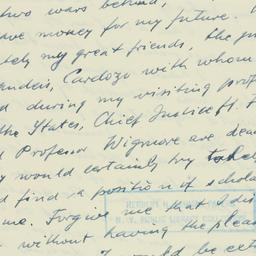 two wars behind,
ave money for my future.
tely my great friends, the
andeis, Cardozo with whom
d during my visiting prof
the States, Chief Justice
d Professor Wigmore are dea
y would certainly try to help
d find a position if schola
me. Forgive me that I di
without having the pleas
would be